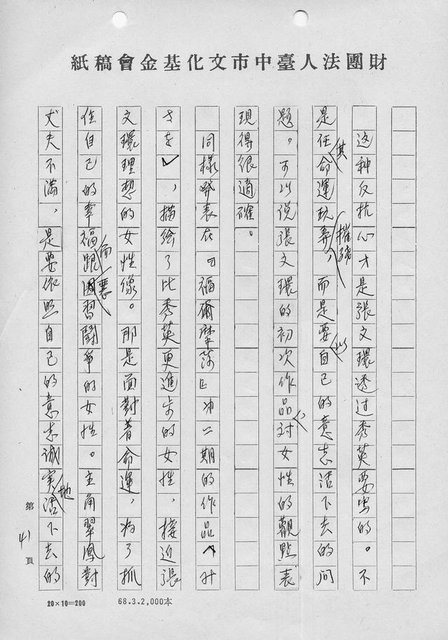 財團法人臺中市文化基金會稿紙
這种反抗心才是張文環透过秀英要出的。不
是任其命運玩弄摧殘,而是要以自己的意志活下去的问
題。可以说張文環的初次作品,对女性的觀點表
現得很適確。
同樣發表在『福爾摩莎』冲二期的作品〈
さを〉,描绘了比秀英更進步的女性,接近張
文環理想的女性像。那是面對著命運,为了抓
住自己的幸福而跟惡習鬪爭的女性。主角翠鳳對
丈夫不滿,是要依照自己的意志誠实地活下去的
第41頁
20×10=200
68.3.2,000本